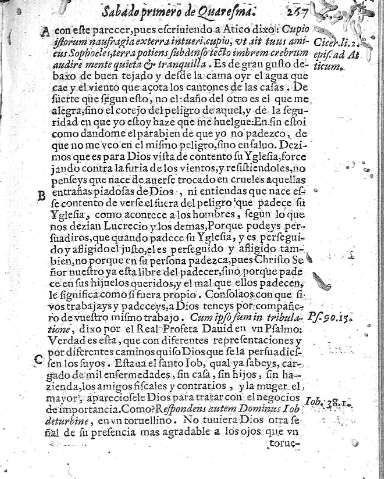 Sabado primero de Quaresma. 267
A con este parecer, pues escriuiendo a Atico dixo: Cupio
istorum naufragia ex terra intueri, cupio, vt ait tuus ami-
cus Sophocles, terra potiens sub denso tecto imbrem crebrum
audire mente quieta & tranquilla. Es de gran gusto de-
baxo de buen tejado y desde la cama oyr el agua que
cae y el viento que açota los cantones de las casas. De
suerte que segun esto, no el daño del otro es el que me
alegra, sino el cotejo del peligro de aquel, y de la segu-
ridad en que yo estoy haze que me huelgue: En fin estoi
como dandome el parabien de que yo no padezco, de
que no me veo en el mismo peligro, sino en saluo. Dezi-
mos que es para Dios vista de contento su Yglesia, force
jando contra la furia de los vientos, y resistiendoles, no
penseys que nace de auerse trocado en crueles aquellas
B entrañas piadosas de Dios, ni entiendas que nace es-
se contento de verse el fuera del peligro que padece su
Yglesia, como acontece a los hombres, segun lo que
nos dezian Lucrecio y los demas, Porque podeys per-
suadiros, que quando padece su Yglesia, y es persegui-
do y afligido el justo, el es perseguido y afligido tam-
bien, no porque en su persona padezca, pues Christo Se
ñor nuestro ya esta libre del padecer, sino porque pade
ce en sus hijuelos queridos, y el mal que ellos padecen,
le significa como si fuera propio. Consolaos con que si
vos trabajays y padeceys, a Dios teneys por compañe-
ro de vuestro mismo trabajo. Cum ipso sum in tribula-
tione, dixo por el Real Profeta Dauid en vn Psalmo:
Verdad es esta, que con diferentes representaciones y
por diferentes caminos quiso Dios que se la persuadies-
C sen los suyos. Estaua el santo Iob, qual ya sabeys, car-
gado de mil enfermedades, sin casa, sin hijos, sin ha-
zienda, los amigos fiscales y contrarios, y la muger el
mayor, apareciosele Dios para tratar con el negocios
de importancia. Como? Respondens autem Dominus Iob
de turbine, en vn toruellino. No tuuiera Dios otra se
ñal de su presencia mas agradable a los ojos que vn
toruc-
Cicer. li. 2.
epis. ad At
ticum.
Ps. 90. 15.
Iob. 38. 1.